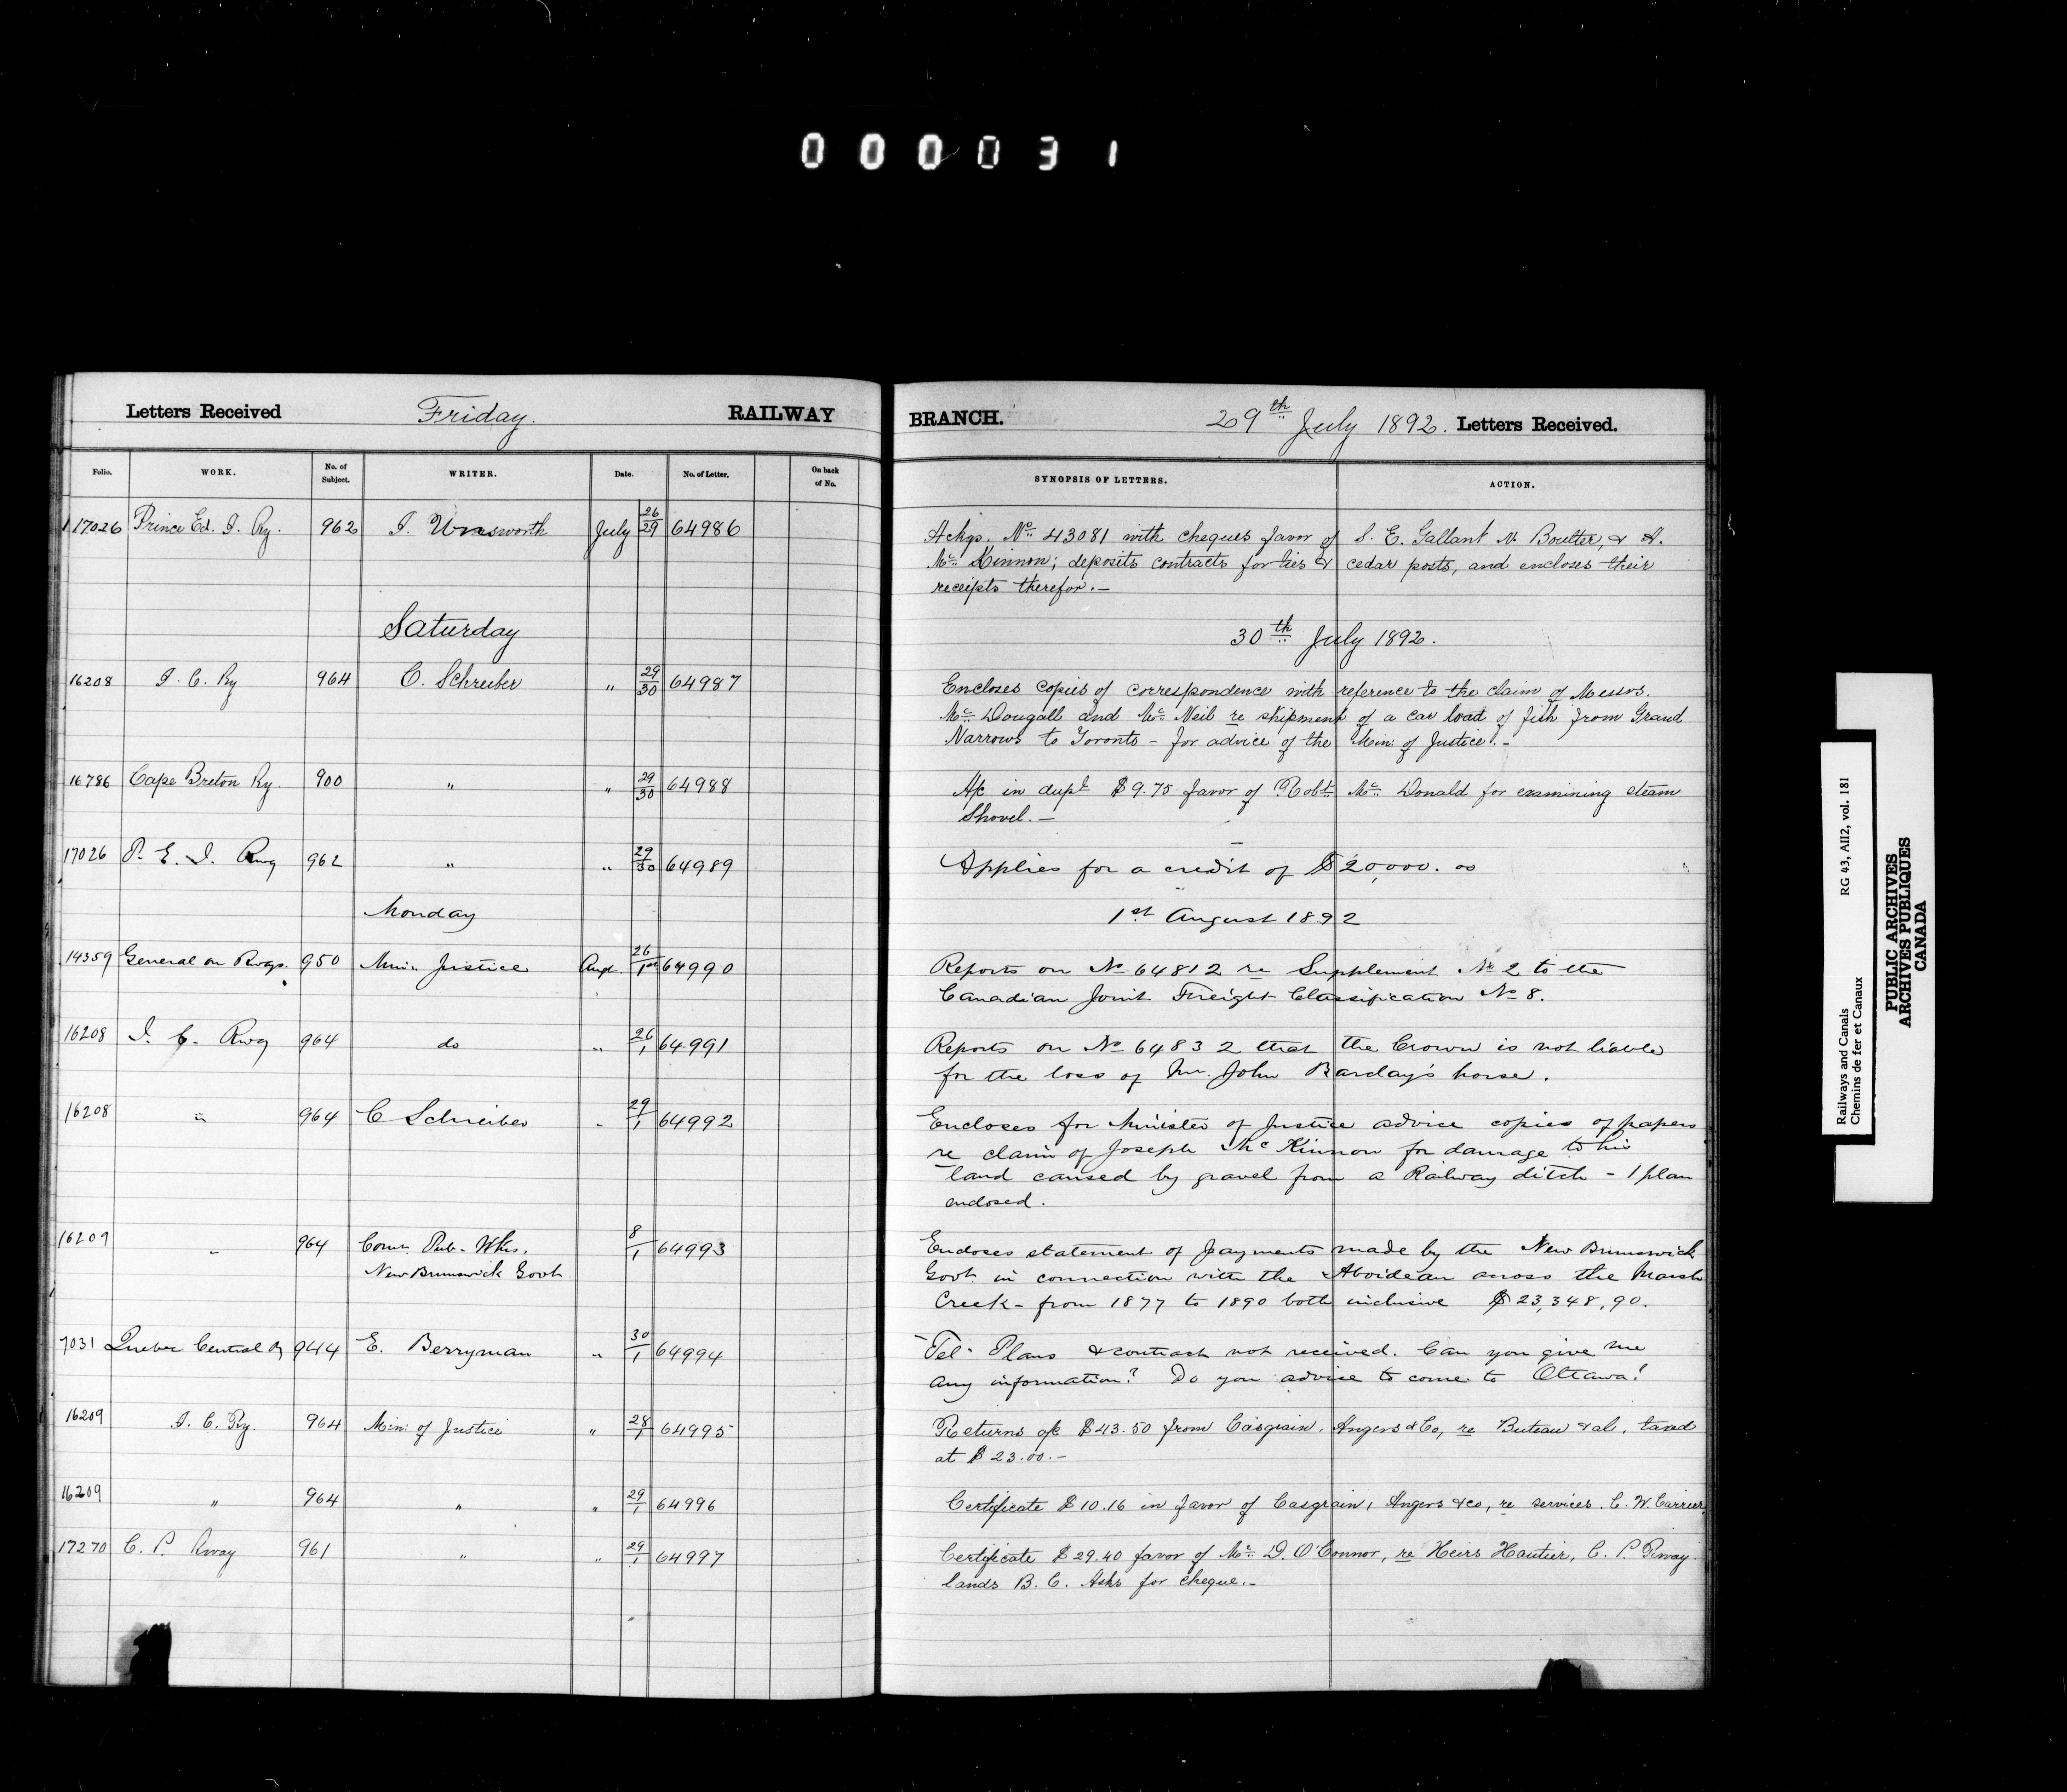 000031
Letters Received Friday. RAILWAY
BRANCH. 29th July 1892. Letters Received.
Folio. WORK. No. of Subject. WRITER. Date. No. of Letter. On back of No.
SYNOPSIS OF LETTERS. ACTION.
17026 Prince Ed. I. Ry. 962 J. Unsworth July 26/29 64986
Ackgs. No. 43081 with cheques favor of S. E. Gallant N. Boulter, & A.
Mc. Kinnon; deposits contracts for ties & cedar posts, and encloses their
receipts therefor.—
Saturday
30th July 1892.
16208 I. C. Ry 964 C. Schreiber " 29/30 64987
Encloses copies of correspondence with reference to the claim of Messrs.
Mc. Dougall and Mc. Neil re shipment of a car load of fish from Grand
Narrows to Toronto – for advice of the Min: of Justice.–
16786 Cape Breton Ry. 900 " " 29/30 64988
A/c in dupl. $9.75 favor of Robt. Mc. Donald for examining steam
Shovel.—
17026 P. E. I. Rwy 962 " " 29/30 64989
Applies for a credit of $20,000.00
Monday
1st August 1892
14359 General on Rwys. 950 Min. Justice Augt. 26/1st 64990
Reports on No 64812 re Supplement No 2 to the
Canadian Joint Freight Classification No 8.
16208 I. C. Rwy 964 do " 26/1 64991
Reports on No 64832 that the Crown is not liable
for the loss of Mr. John Barclay's horse.
16208 " 964 C Schreiber " 29/1 64992
Encloses for Minister of Justice advice copies of papers
re claim of Joseph McKinnon for damage to his
land caused by gravel from a Railway ditch – 1 plan
enclosed.
16209 " 964 Com. Pub. Wks. 8/1 64993
New Brunswick Govt
Encloses statement of payments made by the New Brunswick
Govt. in connection with the Aboideau across the Marsh
Creek – from 1877 to 1890 both inclusive $23,348.90.
7031 Quebec Central Ry 944 E. Berryman " 30/1 64994
Tel. Plans & contract not received. Can you give me
any information? Do you advise to come to Ottawa?
16209 I. C. Ry. 964 Min: of Justice " 28/1 64995
Returns a/c $43.50 from Casgrain, Angers & Co, re Buteau & al, taxed
at $23.00.–
16209 " 964 " " 29/1 64996
Certificate $10.16 in favor of Casgrain, Angers & co, re services. C. W. Carrier.
17270 C. P. Rway 961 " " 29/1 64997
Certificate $29.40 favor of Mr. D. O'Connor, re Heirs Hautier, C. P. Rway.
lands B. C. Asks for cheque.–
Railways and Canals RG 43, AII2, vol. 181
Chemins de fer et Canaux
PUBLIC ARCHIVES
ARCHIVES PUBLIQUES
CANADA